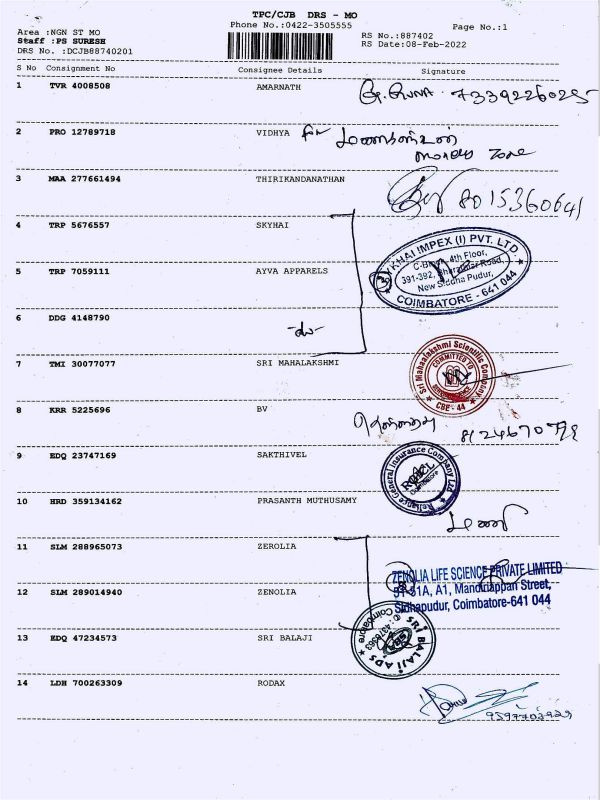 TPC/CJB DRS - MO
Phone No.:0422-3505555
Page No.:1
Area :NGN ST MO
Staff :PS SURESH
DRS No. :DCJB88740201
RS No.:887402
RS Date:08-Feb-2022
S No Consignment No Consignee Details Signature
1 TVR 4008508 AMARNATH 7339226025
2 PRO 12789718 VIDHYA for
Zone
3 MAA 277661494 THIRIKANDANATHAN 8015360641
4 TRP 5676557 SKYHAI
KHAI IMPEX (I) PVT. LTD
4th Floor,
391-392, Bharathiar Road,
New Siddha Pudur,
COIMBATORE - 641 044
5 TRP 7059111 AYVA APPARELS
6 DDG 4148790 -do-
7 TMI 30077077 SRI MAHALAKSHMI
Sri Mahaalakshmi Scientific Company
COMMITTED TO
CBE - 44
8 KRR 5225696 BV
9 EDQ 23747169 SAKTHIVEL
Reliance General Insurance Company Ltd.
10 HRD 359134162 PRASANTH MUTHUSAMY
மணி
11 SLM 288965073 ZEROLIA
ZENOLIA LIFE SCIENCE PRIVATE LIMITED
31A, A1, Mandriappan Street,
Sidhapudur, Coimbatore-641 044
12 SLM 289014940 ZENOLIA
13 EDQ 47234573 SRI BALAJI
SRI BALAJI ADS
Coimbatore
14 LDH 700263309 RODAX